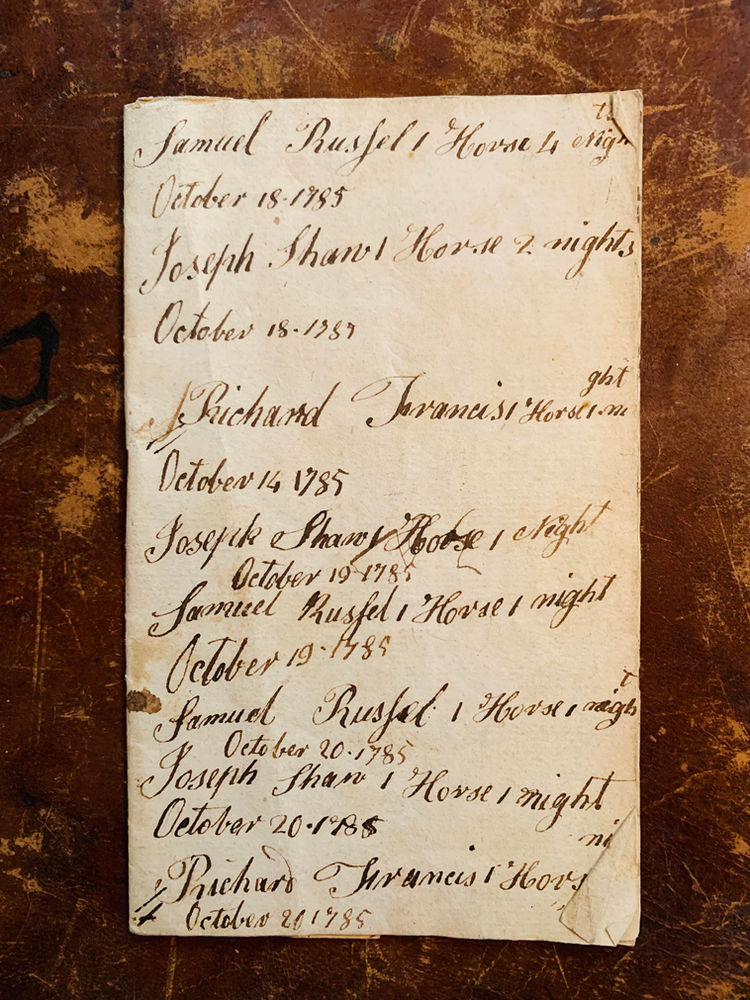 Samuel Rufsel 1 Horse 4 Night
October 18-1785
Joseph Shaw 1 Horse 2 nights
October 18-1785
Richard Francis 1 Horse 1 night
October 14 1785
Joseph Shaw 1 Horse 1 Night
October 19-1785
Samuel Rufsel 1 Horse 1 night
October 19-1785
Samuel Rufsel 1 Horse 1 night
October 20-1785
Joseph Shaw 1 Horse 1 night
October 20-1785
Richard Francis 1 Hors ni
October 20 1785